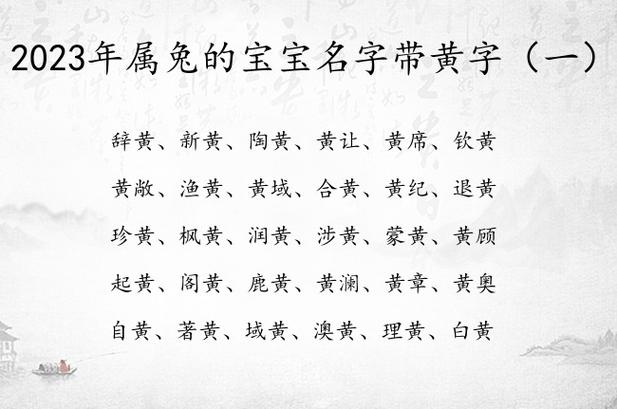 2023年属兔的宝宝名字带黄字（一）
辞黄、新黄、陶黄、黄让、黄席、钦黄
黄敞、渔黄、黄域、合黄、黄纪、退黄
珍黄、枫黄、润黄、涉黄、蒙黄、黄顾
起黄、阁黄、鹿黄、黄澜、黄章、黄奥
自黄、著黄、域黄、澳黄、理黄、白黄